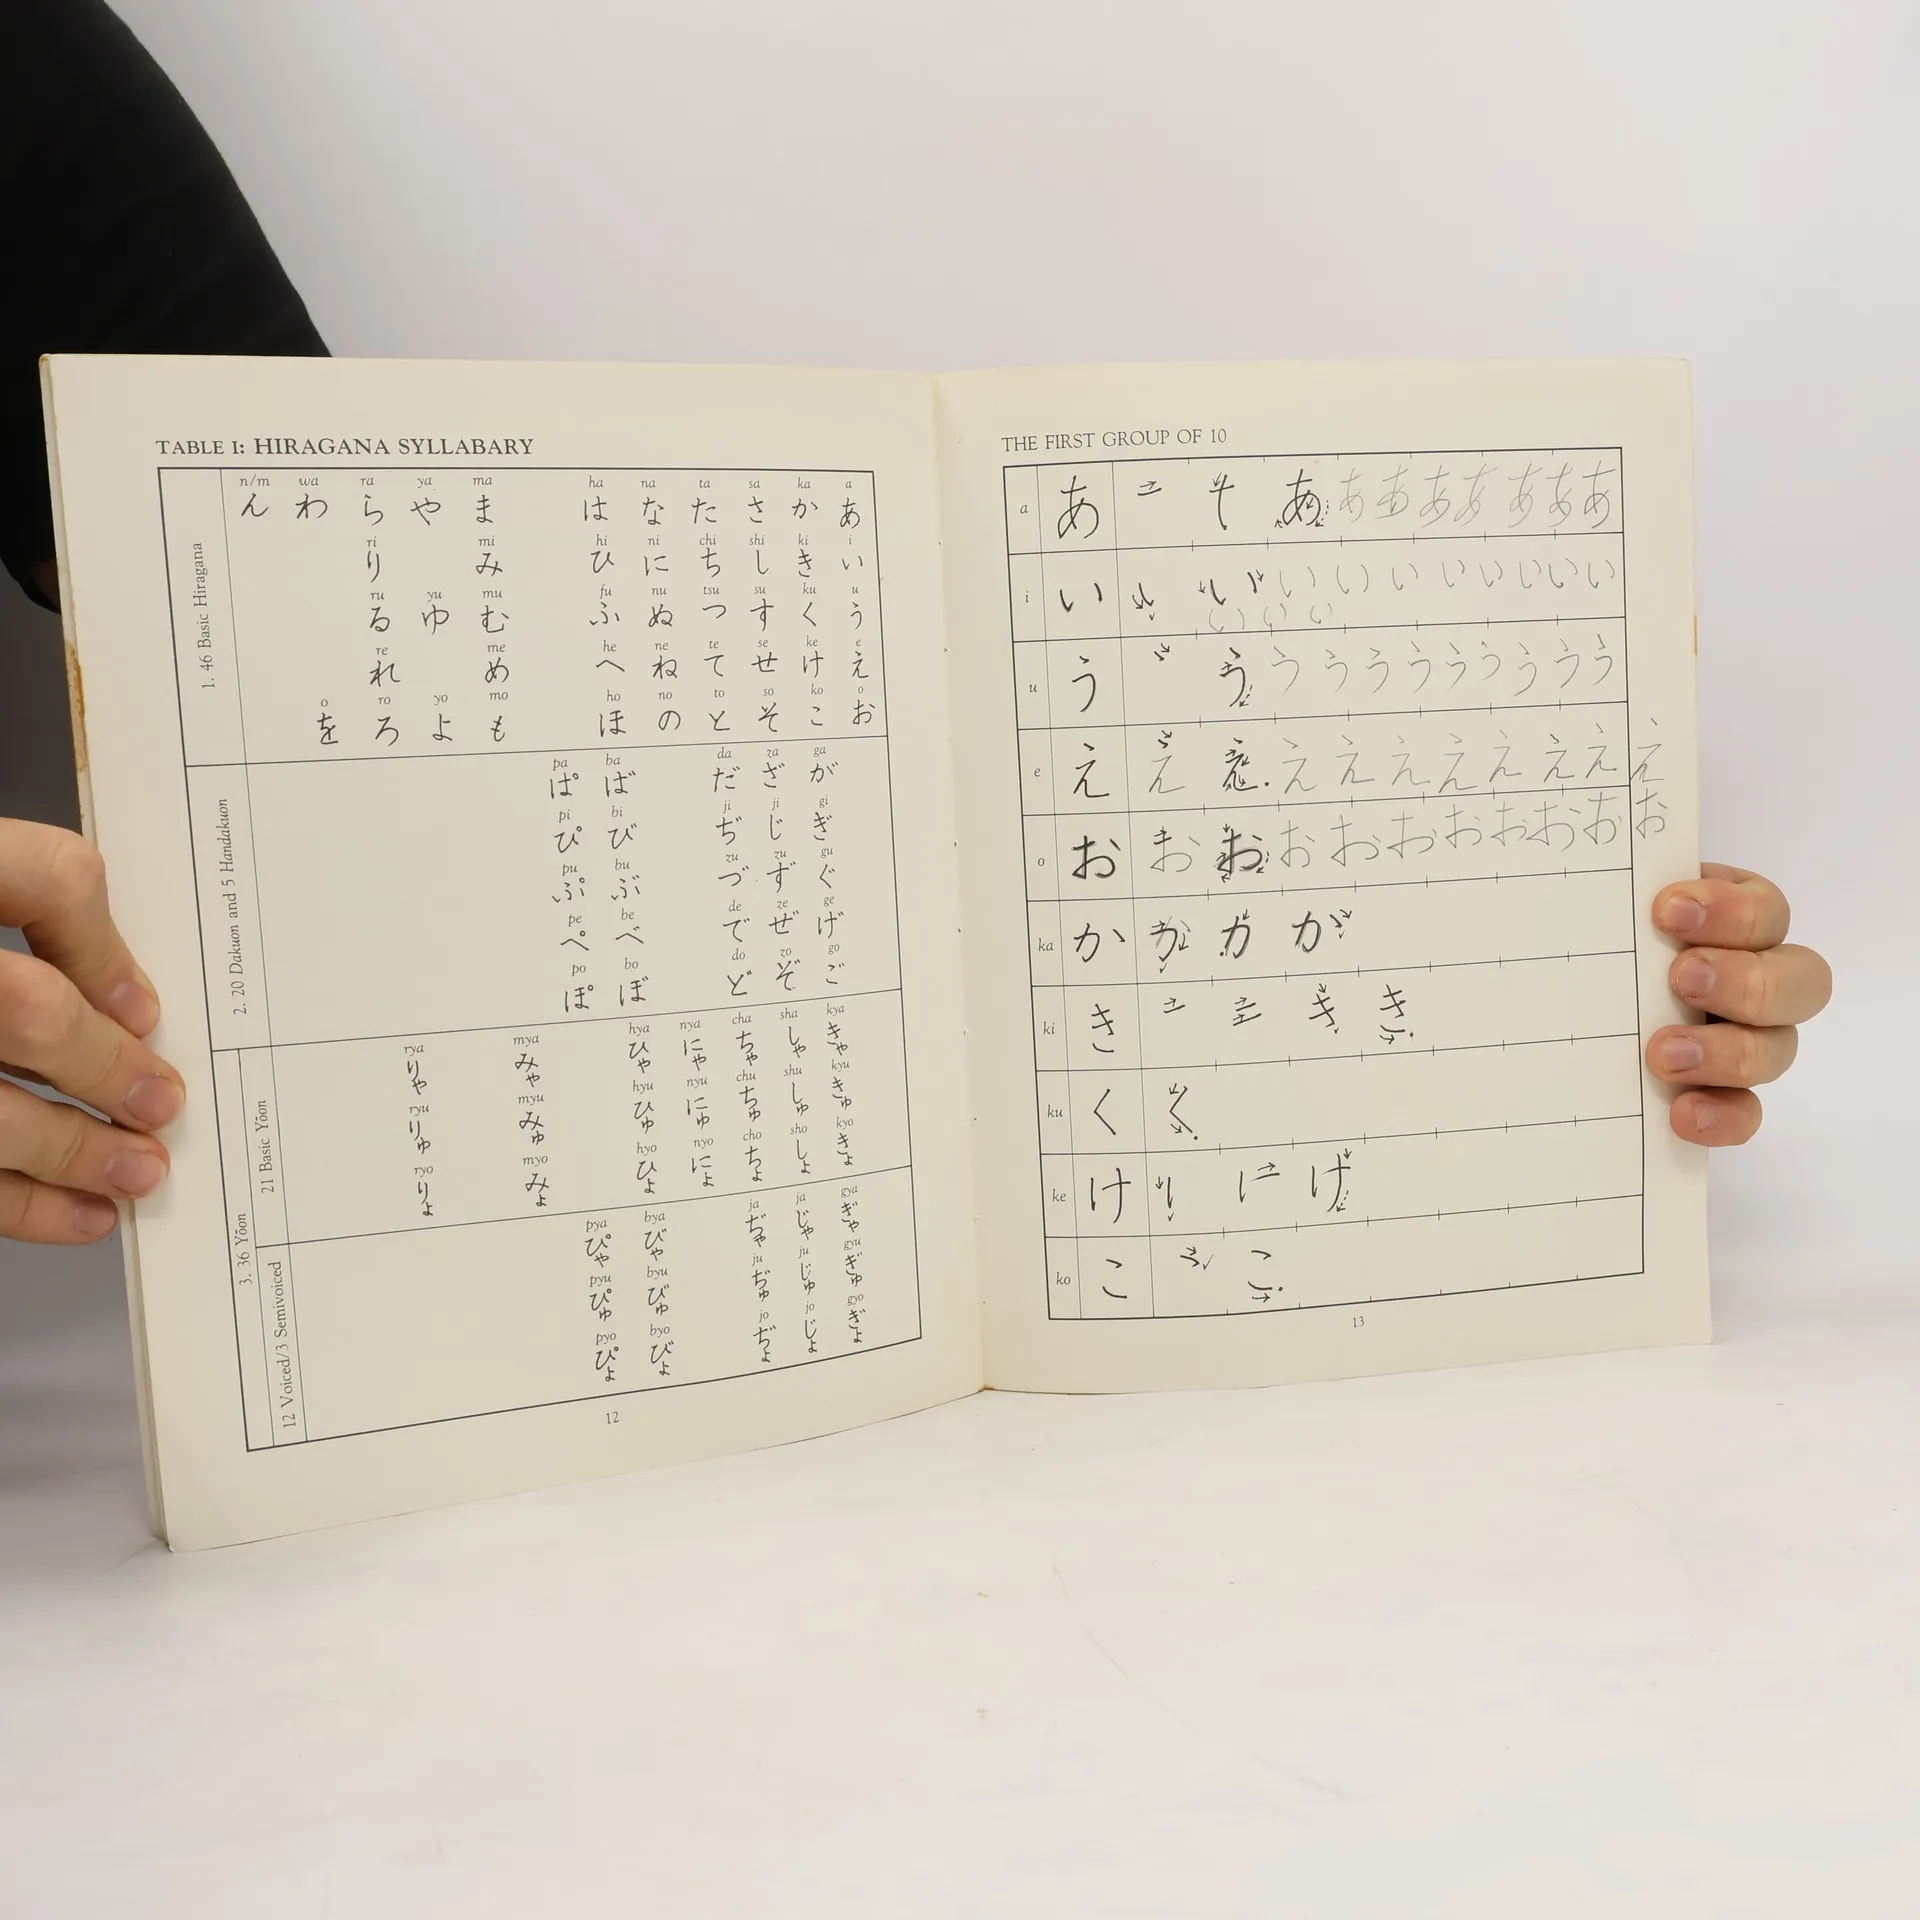 TABLE I: HIRAGANA SYLLABARY
1. 46 Basic Hiragana
n/m wa ra ya ma ha na ta sa ka a
ん わ ら や ま は な た さ か あ
ri mi hi ni chi shi ki i
り み ひ に ち し き い
ru yu mu fu nu tsu su ku u
る ゆ む ふ ぬ つ す く う
re me he ne te se ke e
れ め へ ね て せ け え
o ro yo mo ho no to so ko o
を ろ よ も ほ の と そ こ お
2. 20 Dakuon and 5 Handakuon
pa ba da za ga
ぱ ば だ ざ が
pi bi ji ji gi
ぴ び ぢ じ ぎ
pu bu zu zu gu
ぷ ぶ づ ず ぐ
pe be de ze ge
ぺ べ で ぜ げ
po bo do zo go
ぽ ぼ ど ぞ ご
3. 36 Yōon
21 Basic Yōon
rya mya hya nya cha sha kya
りゃ みゃ ひゃ にゃ ちゃ しゃ きゃ
ryu myu hyu nyu chu shu kyu
りゅ みゅ ひゅ にゅ ちゅ しゅ きゅ
ryo myo hyo nyo cho sho kyo
りょ みょ ひょ にょ ちょ しょ きょ
12 Voiced/3 Semivoiced
pya bya ja ja gya
ぴゃ びゃ ぢゃ じゃ ぎゃ
pyu byu ju ju gyu
ぴゅ びゅ ぢゅ じゅ ぎゅ
pyo byo jo jo gyo
ぴょ びょ ぢょ じょ ぎょ
12
THE FIRST GROUP OF 10
a あ あ あ あ あ あ あ あ あ
i い い い い い い い い い い い
い い い
u う う う う う う う う う う
e え え え え え え え え え え え
o お お お お お お お お お お お
ka か か か か
ki き き き
ku く く
ke け け
ko こ こ
13